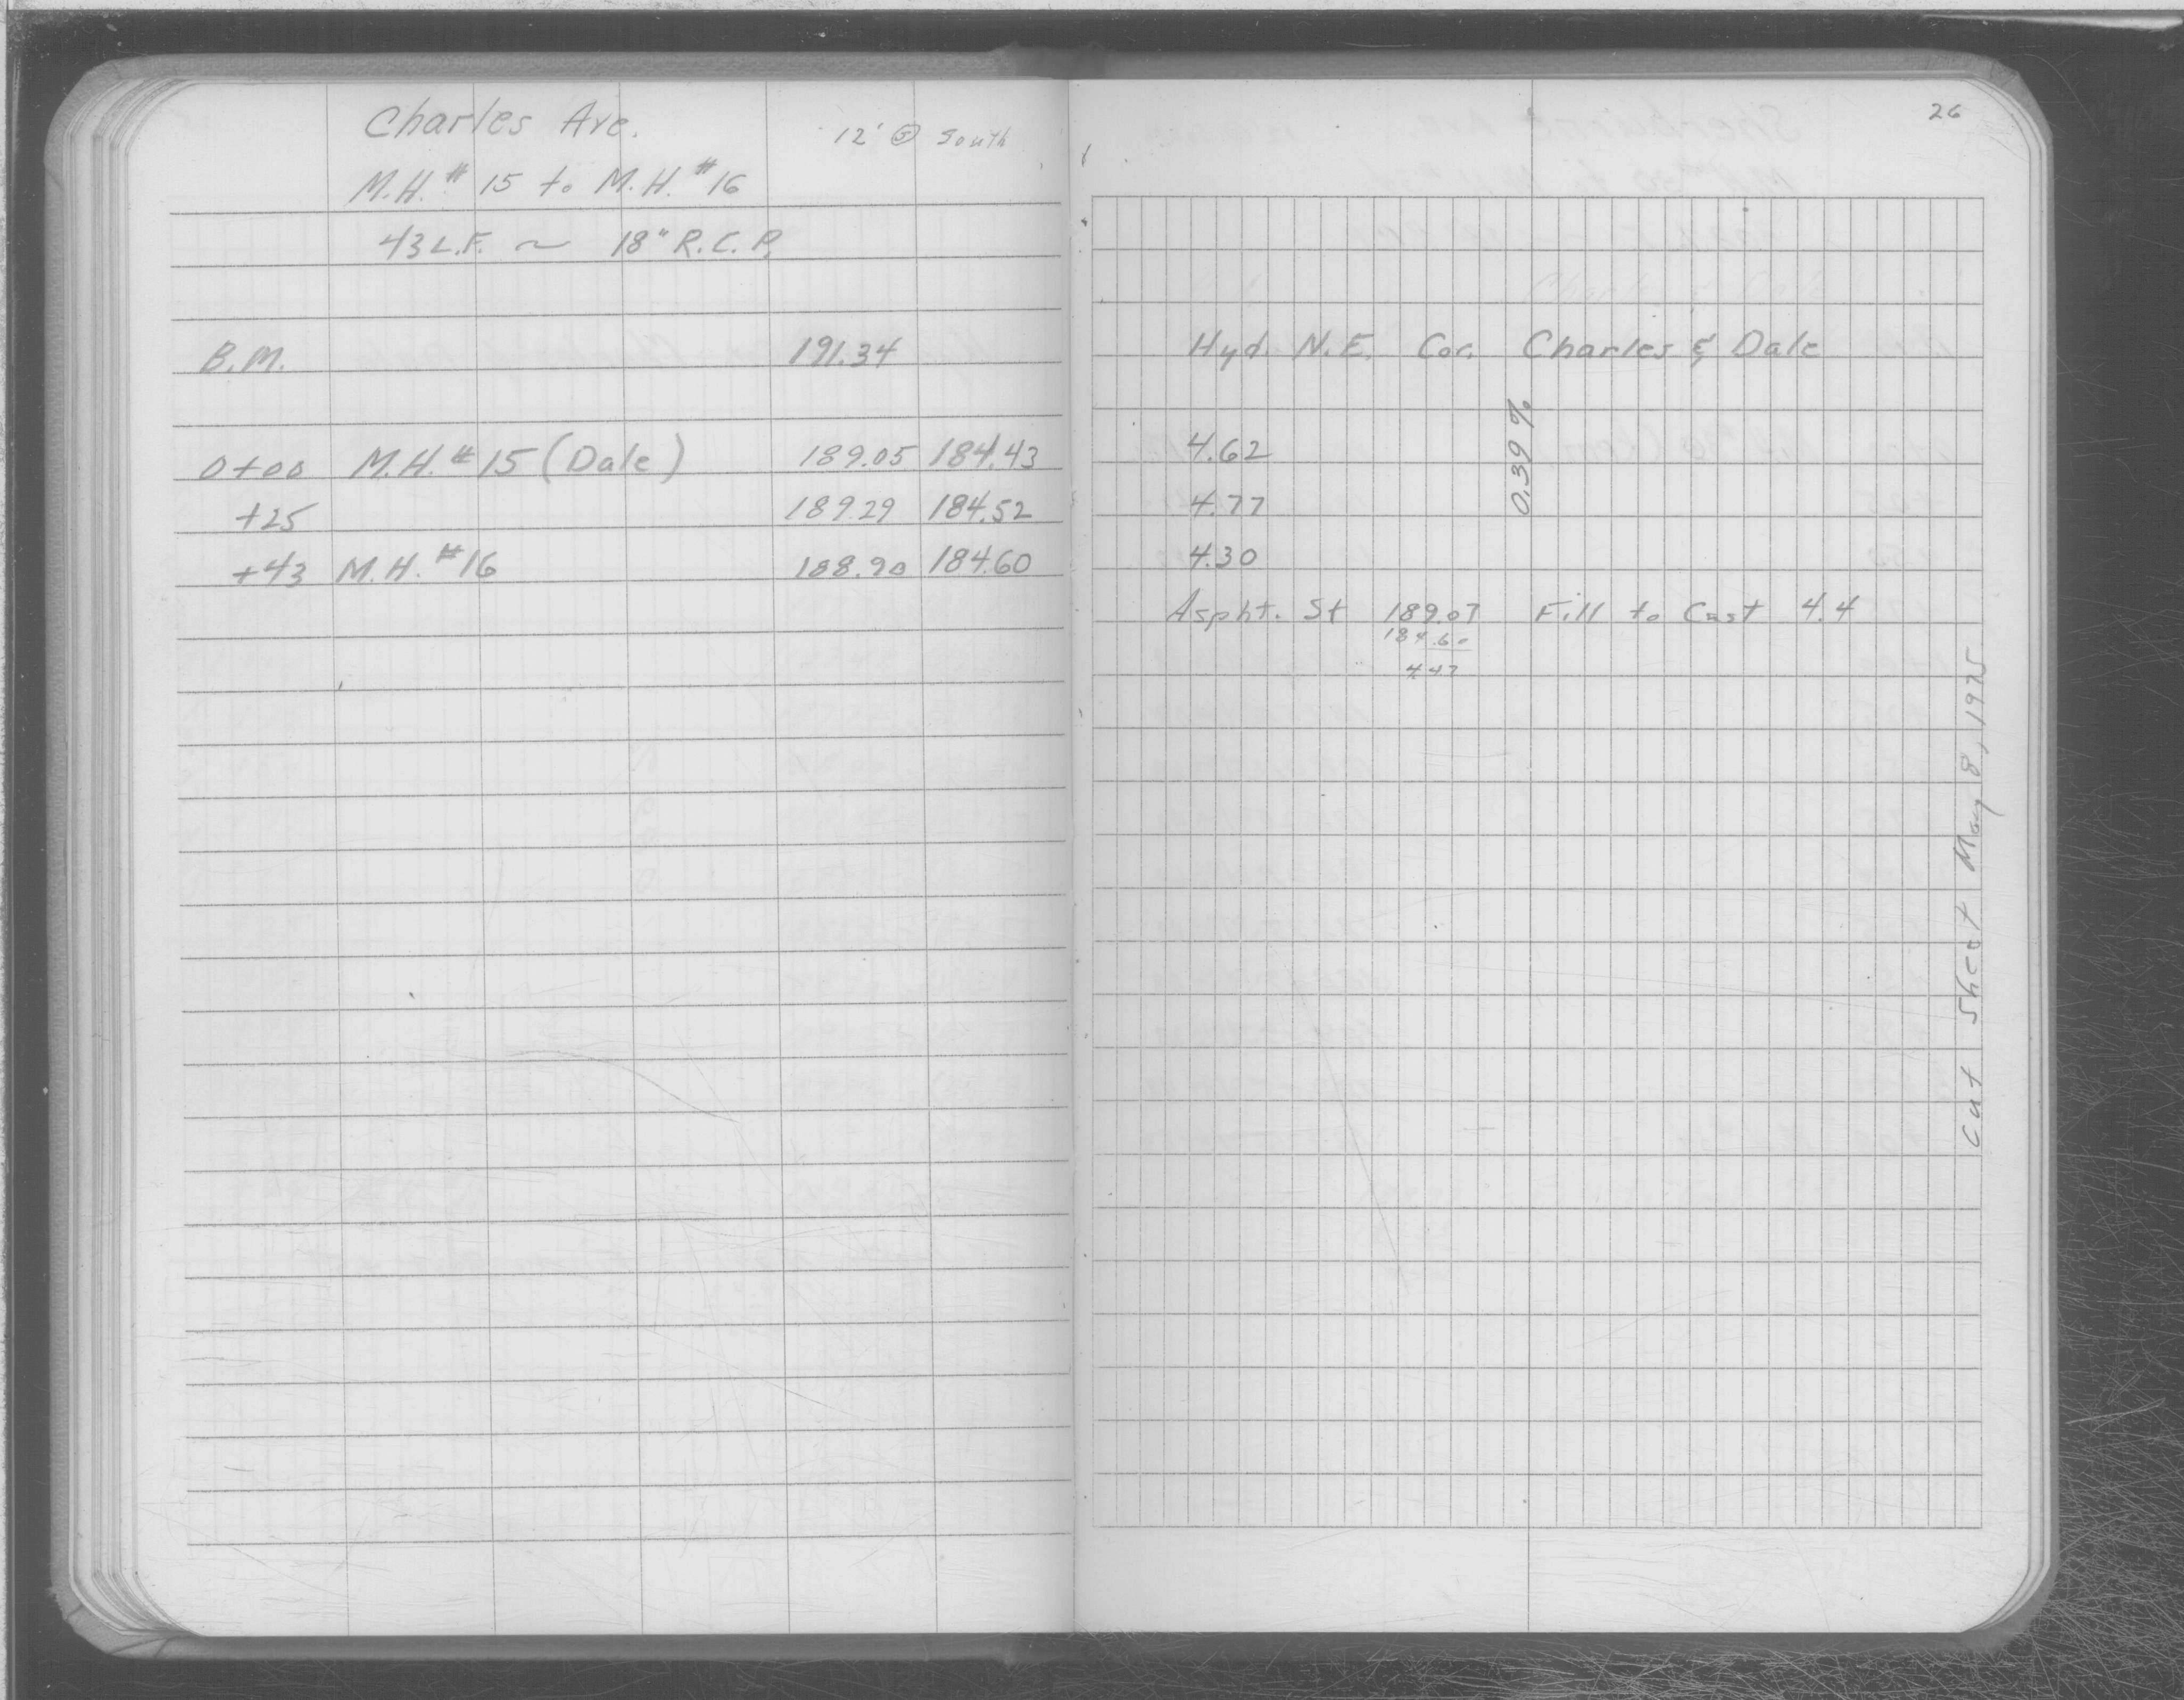 Charles Ave.
12' @ South
M.H. #15 to M.H. #16
43 L.F. ~ 18" R.C.P.
B.M. 191.34
0+00 M.H. #15 (Dale) 189.05 184.43
+25 189.29 184.52
+43 M.H. #16 188.90 184.60
26
Hyd. N.E. Cor. Charles & Dale
0.39 %
4.62
4.77
4.30
Aspht. St 189.07 Fill to Cast 4.4
184.60
4.47
Cut Sheet May 8, 1975